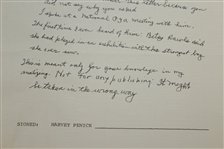 did not say why you asked
I spoke at a National Pga meeting with him.
The first time I ever heard of him Betsy Rawls said
she had played in an exhibition with the strongest boy
she ever saw.
This is meant only for your knowledge in my
analyzing. Not for any publishing It might
be taken in the wrong way
SIGNED: HARVEY PENICK